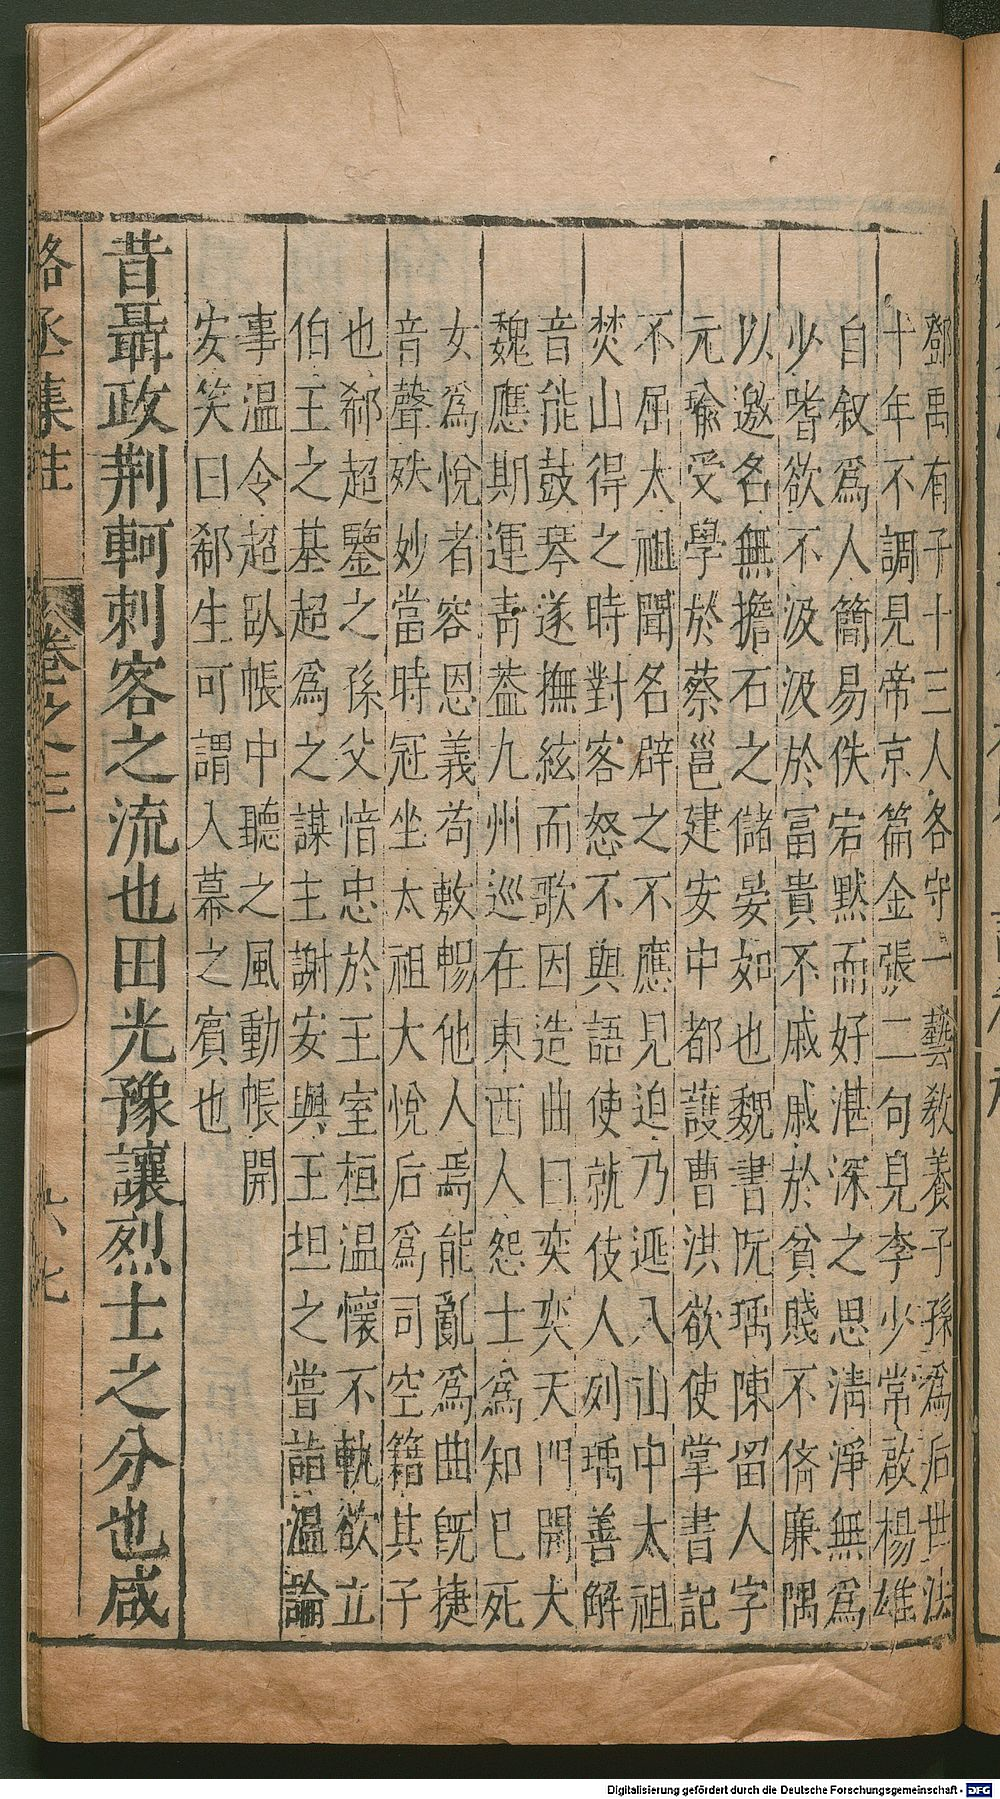 鄧禹有子十三人各守一藝教養子孫爲后世法
十年不調見帝京篇金張二句見李少常啟楊雄
自叙爲人簡易佚宕黙而好湛深之思清淨無爲
少嗜欲不汲汲於富貴不戚戚於貧賤不脩廉隅
以邀名無擔石之儲晏如也魏書阮瑀陳留人字
元瑜受學於蔡邕建安中都護曹洪欲使掌書記
不屈太祖聞名辟之不應見迫乃逃入山中太祖
焚山得之時對客怒不與語使就伎人列瑀善解
音能鼓琴遂撫絃而歌因造曲曰奕奕天門開大
魏應期運青葢九州巡在東西人怨士爲知巳死
女爲悅者容恩義苟敷暢他人焉能亂爲曲旣捷
音聲殊妙當時冠坐太祖大悅后爲司空籍其子
也郗超鑒之孫父愔忠於王室桓温懷不軌欲立
伯王之基超爲之謀主謝安與王坦之嘗詣温論
事温令超臥帳中聽之風動帳開
安笑曰郗生可謂入幕之賓也
昔聶政荆軻刺客之流也田光豫讓烈士之分也咸
駱丞集註 卷之三 六七
Digitalisierung gefördert durch die Deutsche Forschungsgemeinschaft - DFG